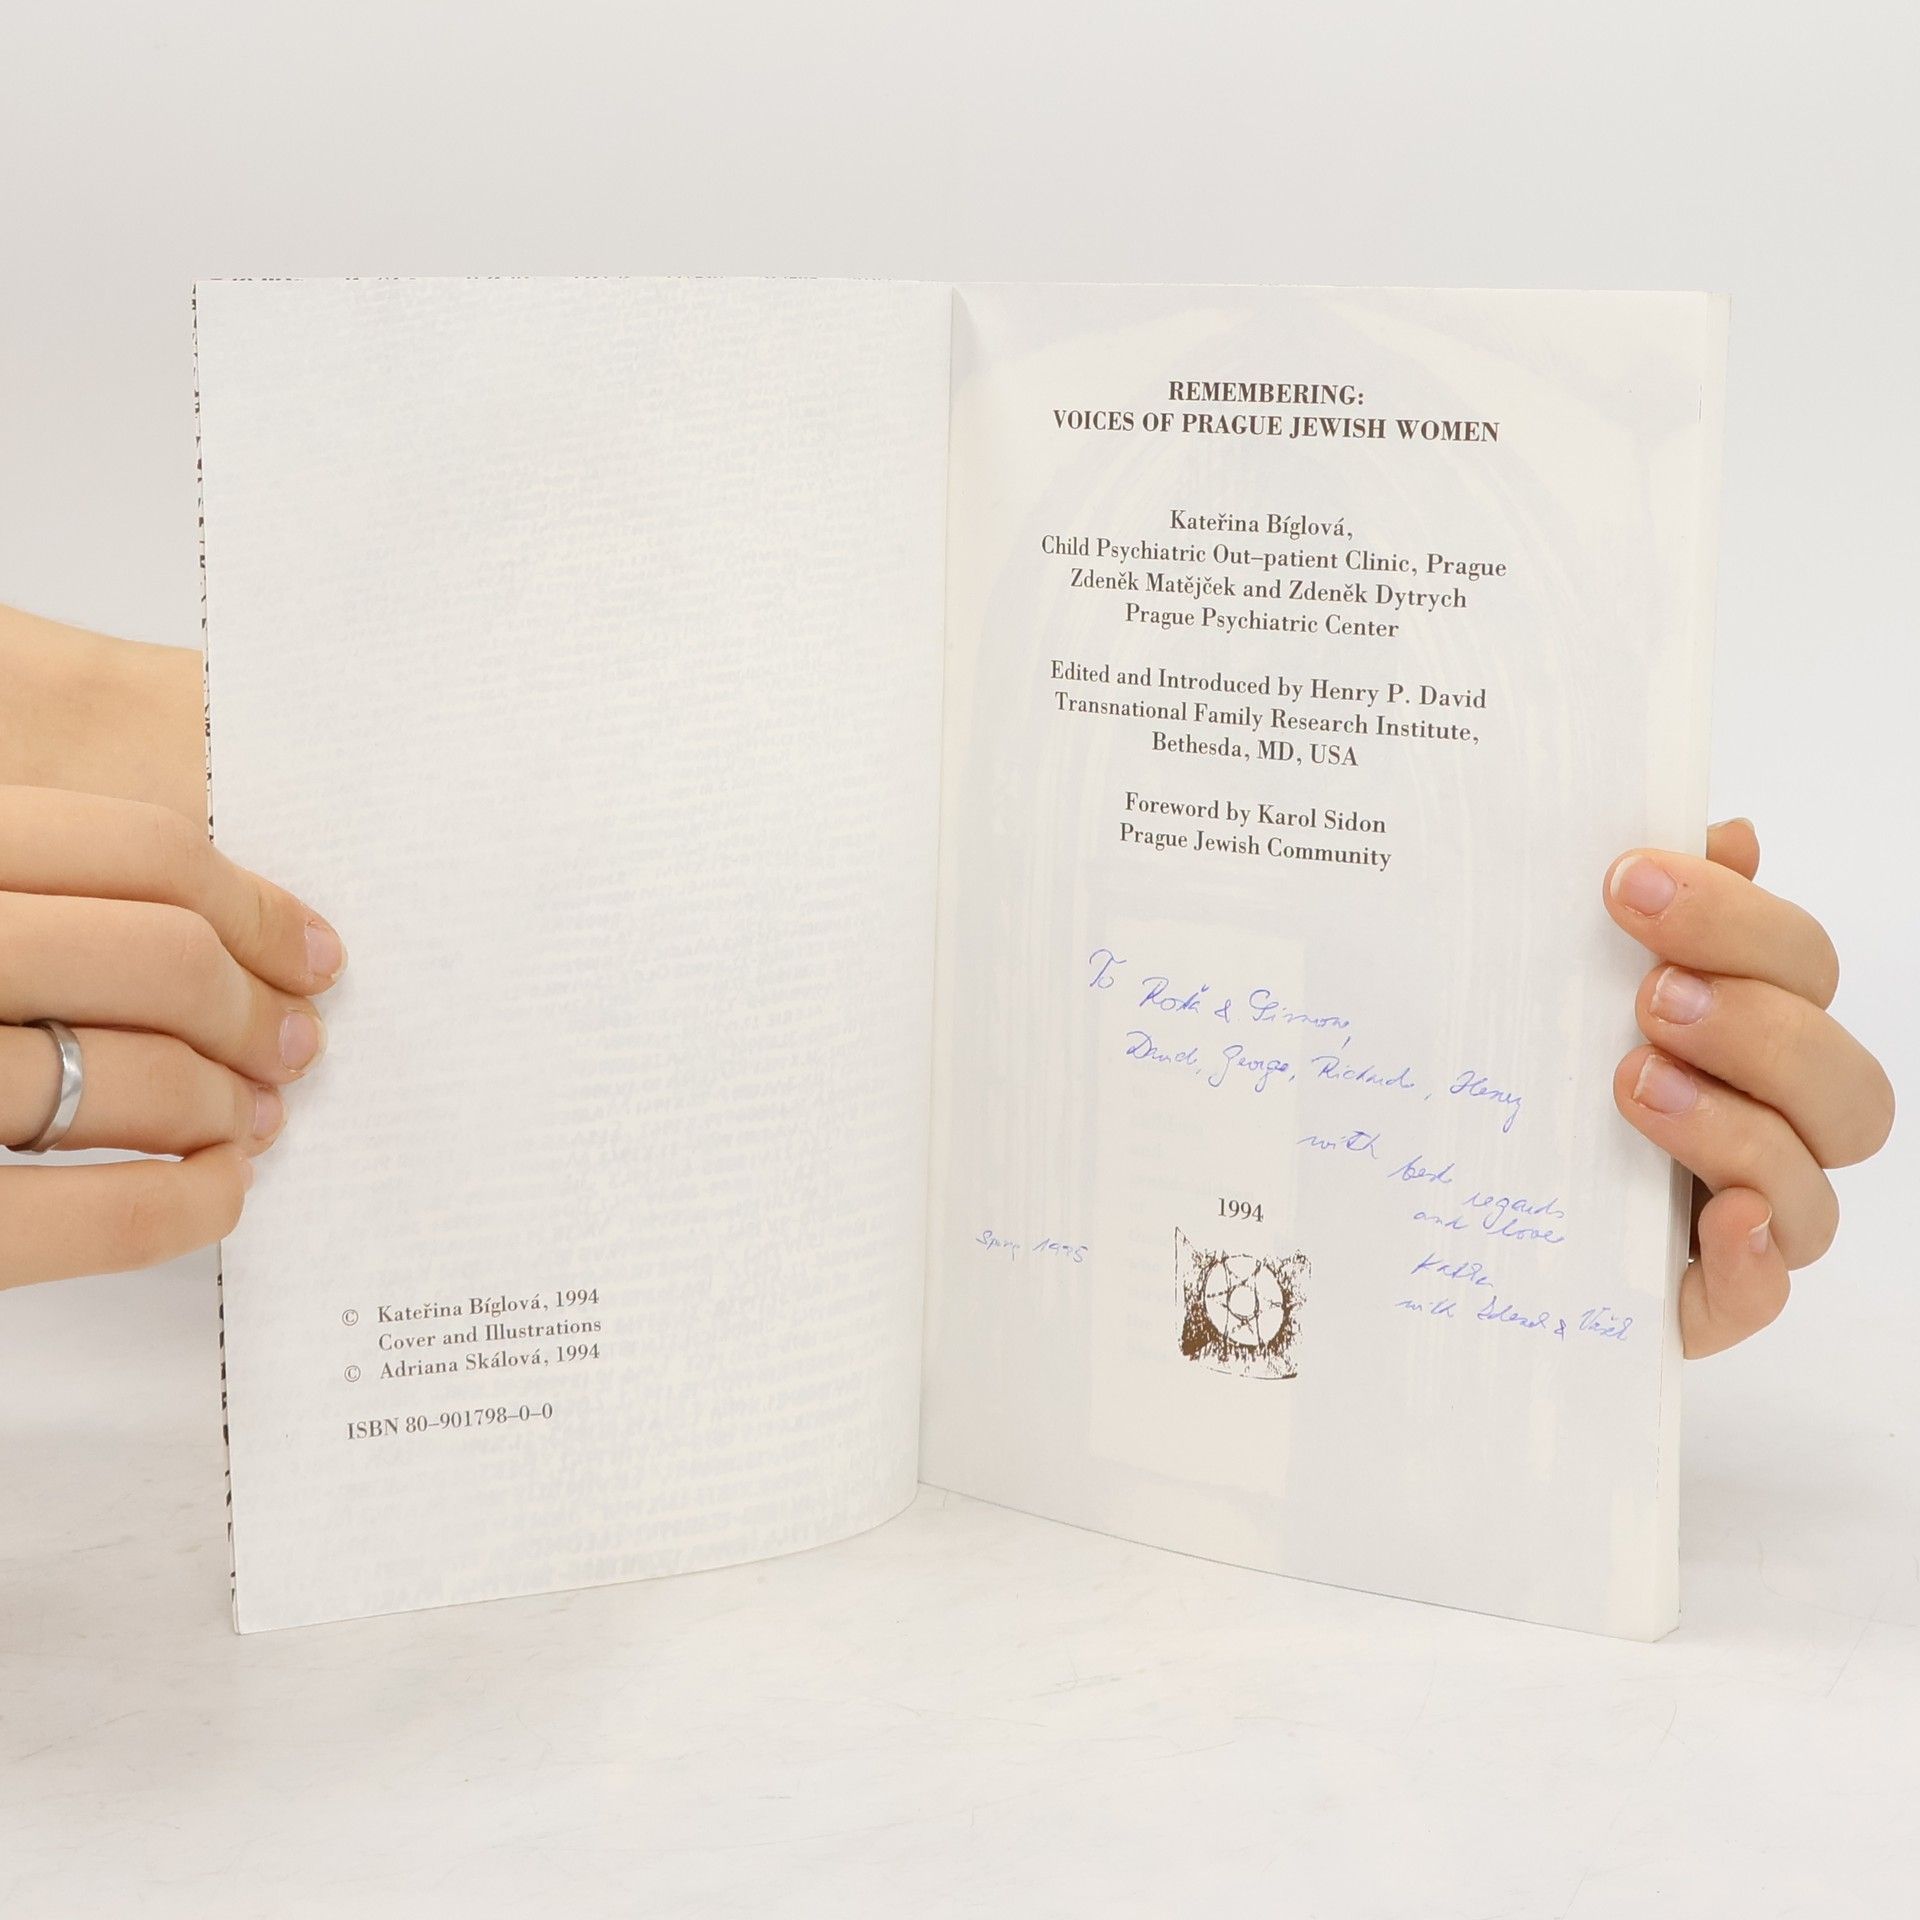 © Kateřina Bíglová, 1994
Cover and Illustrations
© Adriana Skálová, 1994
ISBN 80–901798–0–0
REMEMBERING:
VOICES OF PRAGUE JEWISH WOMEN
Kateřina Bíglová,
Child Psychiatric Out–patient Clinic, Prague
Zdeněk Matějček and Zdeněk Dytrych
Prague Psychiatric Center
Edited and Introduced by Henry P. David
Transnational Family Research Institute,
Bethesda, MD, USA
Foreword by Karol Sidon
Prague Jewish Community
To & Simone,
David, George, Richard, Henry
with best
regards
and love
1994
Spring 1995
with &